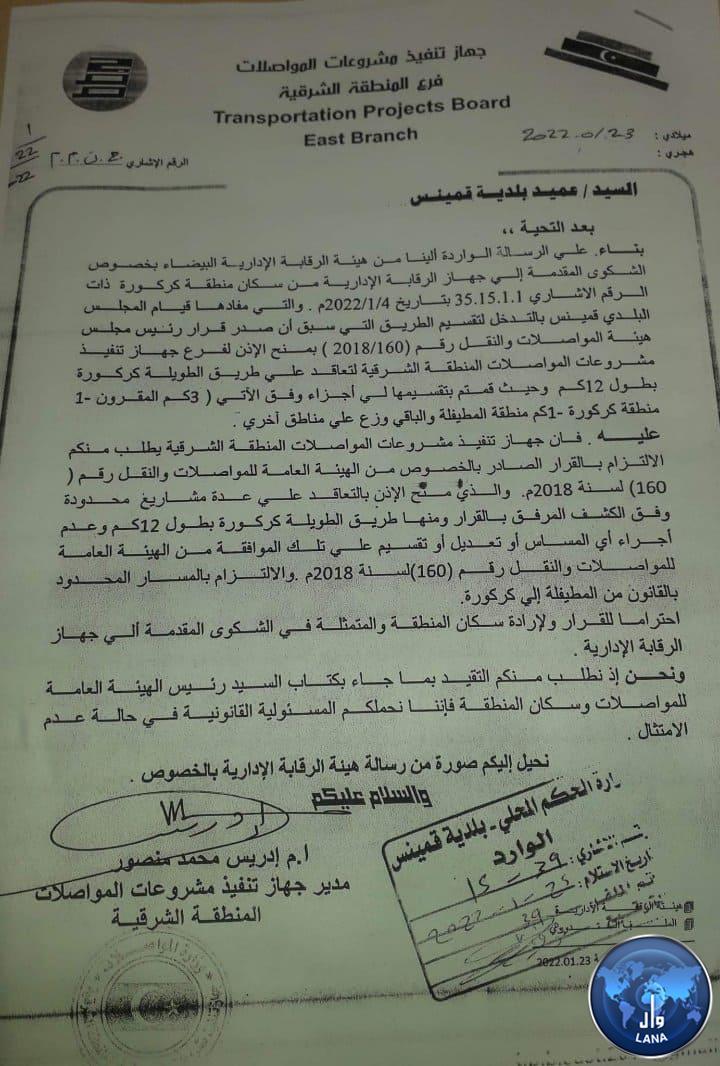 جهاز تنفيذ مشروعات المواصلات
فرع المنطقة الشرقية
Transportation Projects Board
East Branch
ميلادي : 2022.01.23
هجري :
الرقم الإشاري
السيد / عميد بلدية قمينس
بعد التحية ،،
بناء. علي الرسالة الواردة ألينا من هيئة الرقابة الإدارية البيضاء بخصوص
الشكوى المقدمة إلي جهاز الرقابة الإدارية من سكان منطقة كركورة ذات
الرقم الاشاري 35.15.1.1 بتاريخ 2022/1/4م . والتي مفادها قيام المجلس
البلدي قمينس بالتدخل لتقسيم الطريق التي سبق أن صدر قرار رئيس مجلس
هيئة المواصلات والنقل رقم (2018/160 ) بمنح الإذن لفرع جهاز تنفيذ
مشروعات المواصلات المنطقة الشرقية لتعاقد علي طريق الطويلة كركورة
بطول 12كم وحيث قمتم بتقسيمها لي أجزاء وفق الآتي ( 3كم المقرون -1
منطقة كركورة -1كم منطقة المطيفلة والباقي وزع علي مناطق آخري .
عليه . فان جهاز تنفيذ مشروعات المواصلات المنطقة الشرقية يطلب منكم
الالتزام بالقرار الصادر بالخصوص من الهيئة العامة للمواصلات والنقل رقم (
160) لسنة 2018م. والذي منح الإذن بالتعاقد علي عدة مشاريع محدودة
وفق الكشف المرفق بالقرار ومنها طريق الطويلة كركورة بطول 12كم وعدم
أجراء أي المساس أو تعديل أو تقسيم علي تلك الموافقة من الهيئة العامة
للمواصلات والنقل رقم (160)لسنة 2018م .والالتزام بالمسار المحدود
بالقانون من المطيفلة إلي كركورة.
احتراما للقرار ولإرادة سكان المنطقة والمتمثلة في الشكوى المقدمة ألي جهاز
الرقابة الإدارية .
ونحن إذ نطلب منكم التقيد بما جاء بكتاب السيد رئيس الهيئة العامة
للمواصلات وسكان المنطقة فإننا نحملكم المسئولية القانونية في حالة عدم
الامتثال .
نحيل إليكم صورة من رسالة هيئة الرقابة الإدارية بالخصوص .
والسلام عليكم
ا.م إدريس محمد منصور
مدير جهاز تنفيذ مشروعات المواصلات
المنطقة الشرقية
وزارة الحكم المحلي - بلدية قمينس
الوارد
تاريخ الاستلام :
2022.01.23
وال
LANA